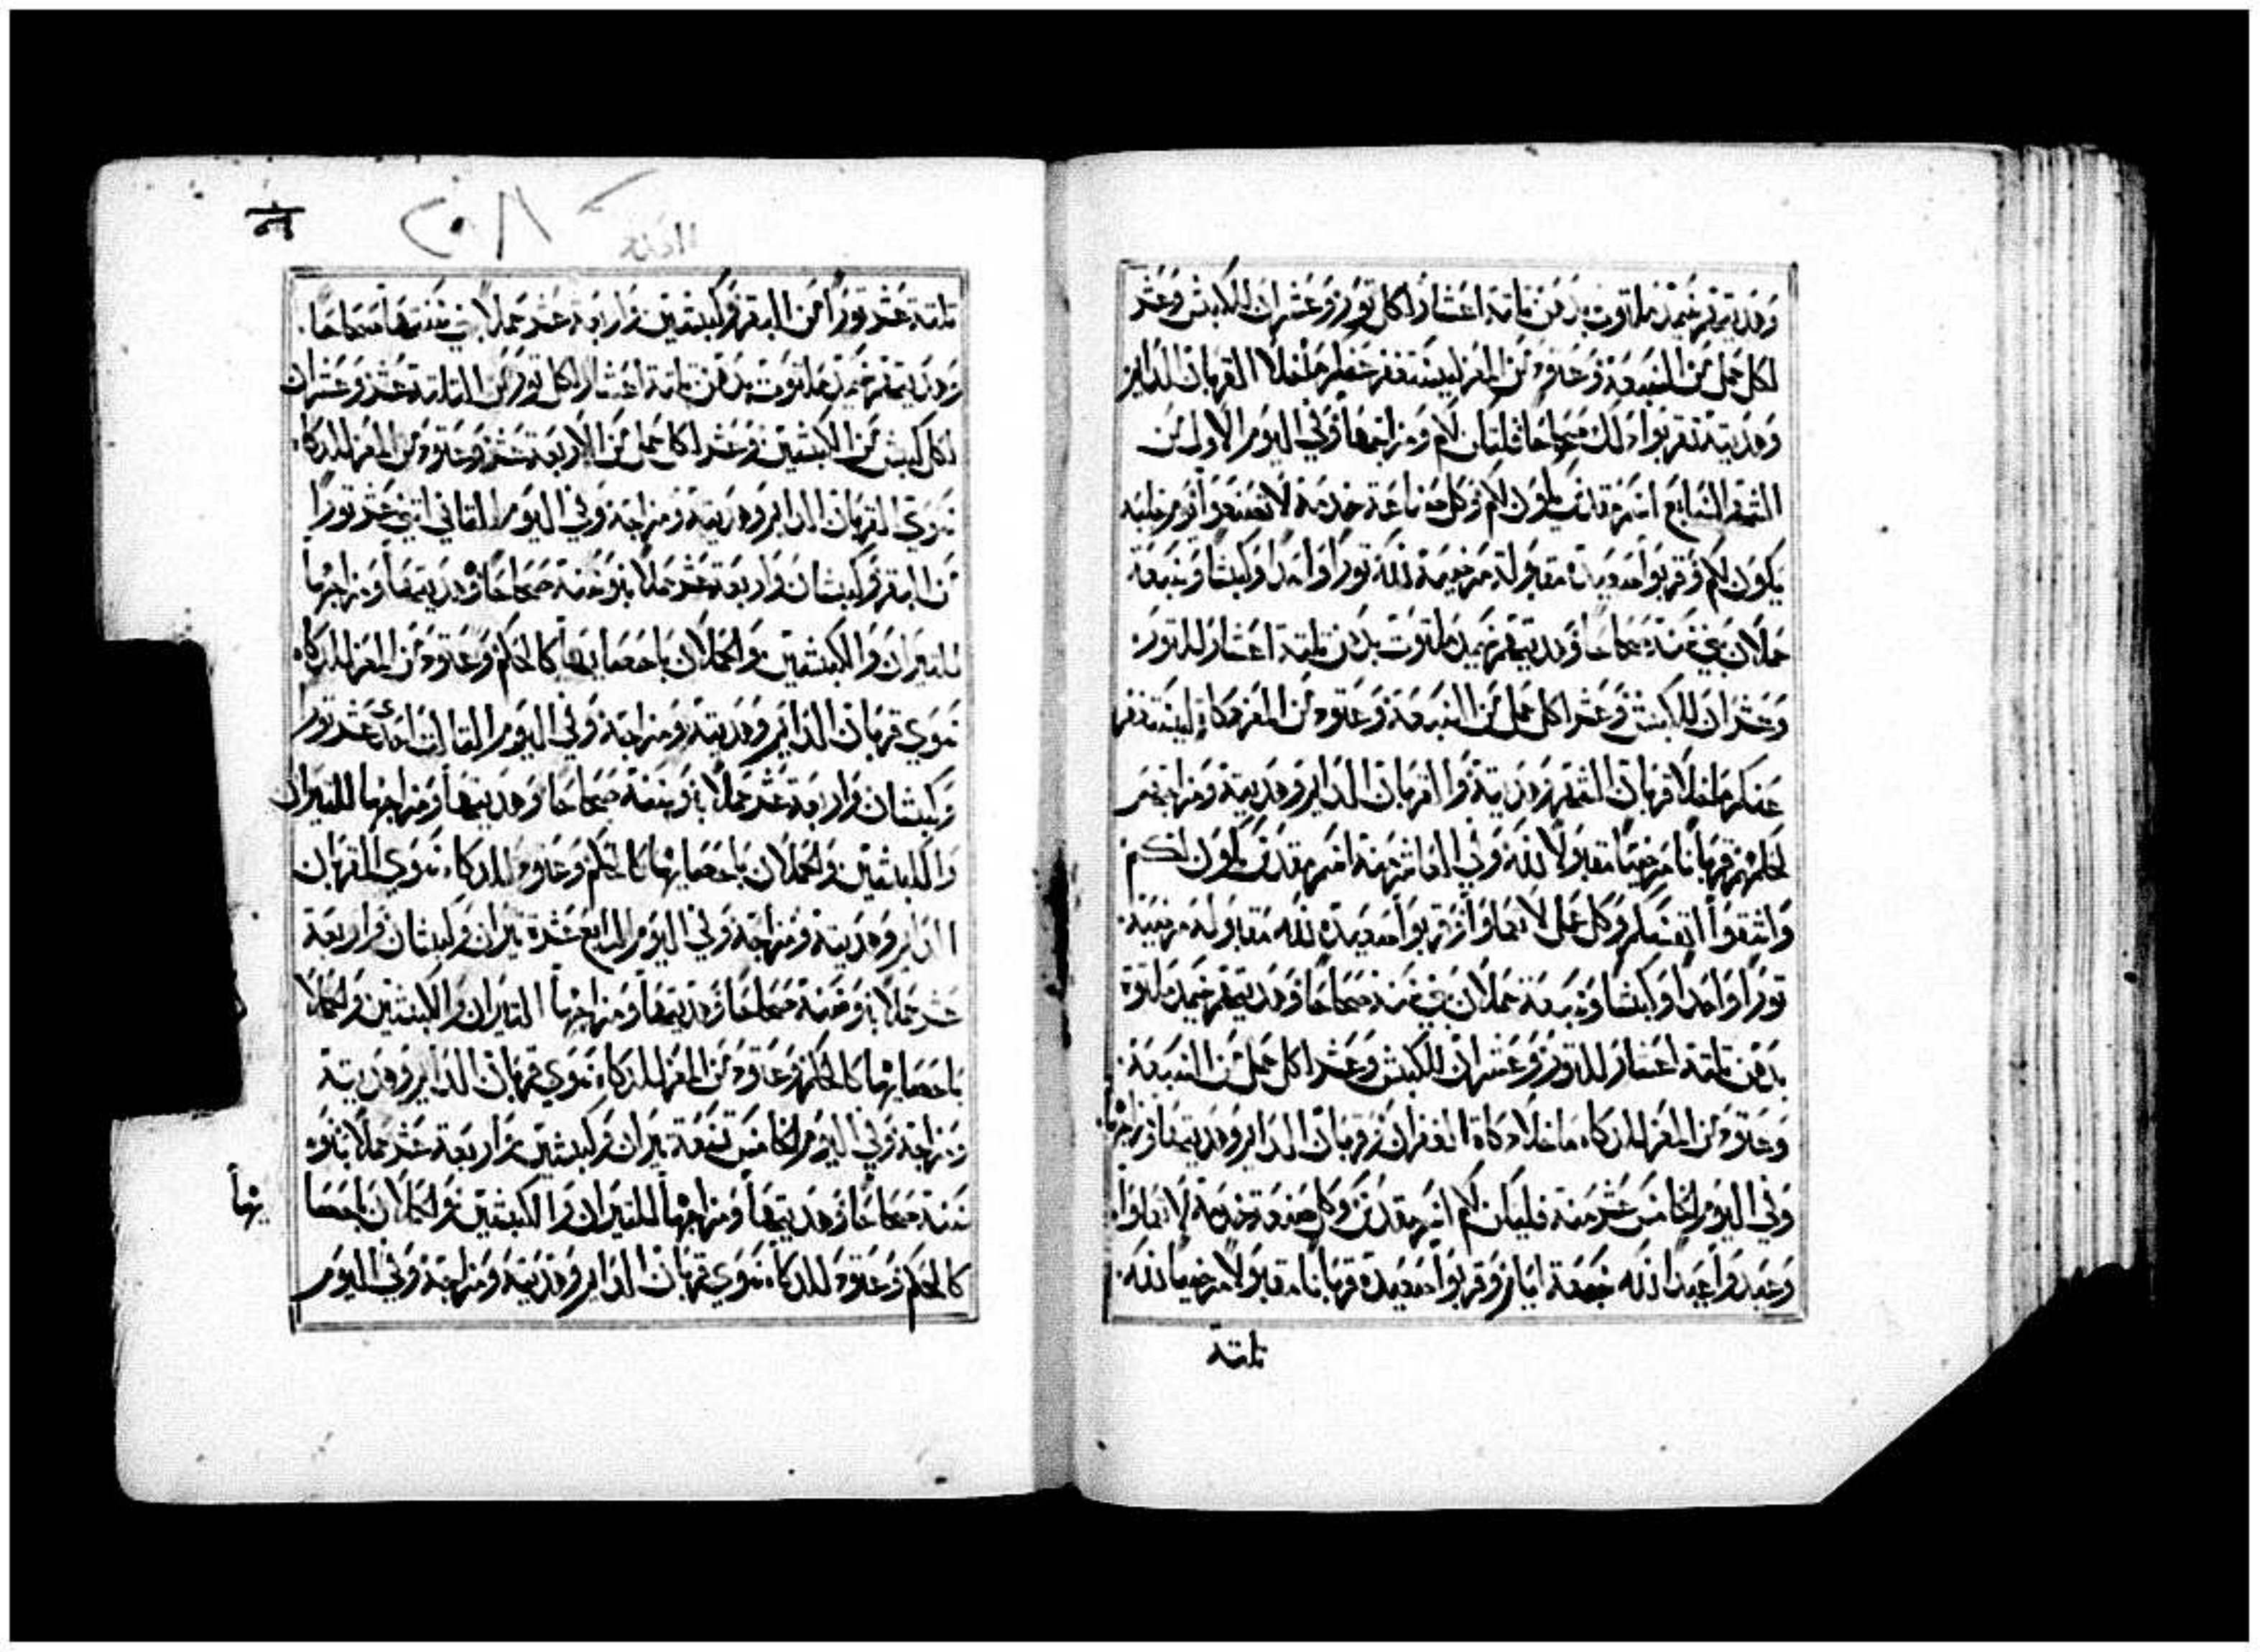 وهديتهم سميد ملتوت بدهن ثلثة اعشار لكل ثور وعشران للكبش وعشر
لكل حمل من السبعة وعتود من المعز ليستغفر عنكم ما خلا القربان الدايم
وهديته تقربوا ذلك صحاحا فليكن لكم ومزاجها وفي اليوم الاول من
الشهر السابع اسم مقدس يكون لكم وكل صناعة خدمة لا تصنعوا يوم جلبة
يكون لكم وقربوا صعيدة مقبولة مرضية لله ثورا واحدا وكبشا وسبعة
حملان بني سنة صحاحا وهديتهم سميد ملتوت بدهن ثلثة اعشار للثور
وعشران للكبش وعشر لكل حمل من السبعة وعتود من المعز ذكاة ليستغفر
عنكم ما خلا قربان الشهر وهديته والقربان الدايم وهديته ومزاجهم
كحكمهم قربانا مرضيا مقبولا لله وفي العاشر منه اسم مقدس يكون لكم
واشقوا انفسكم وكل عمل لا تعملوا وقربوا صعيدة لله مقبولة مرضية
ثورا واحدا وكبشا وسبعة حملان بني سنة صحاحا وهديتهم سميد ملتوت
بدهن ثلثة اعشار للثور وعشران للكبش وعشر لكل حمل من السبعة
وعتود من المعز للذكاة ما خلا ذكاة الغفران وقربان الدايم وهديتها ومزاجها
وفي اليوم الخامس عشر منه فليكن لكم اسم مقدس وكل صنعة وخدمة لا تعملوا
وعيدوا عيدا لله سبعة ايام وقربوا صعيدة قربانا مقبولا مرضيا لله
ثلثة
ثلثة عشر ثورا من البقر وكبشين واربعة عشر حملا بني سنتها صحاحا
وهديتهم سميد ملتوت بدهن ثلثة اعشار لكل ثور من الثلثة عشر وعشران
لكل كبش من الكبشين وعشر لكل حمل من الاربعة عشر وعتود من المعز للذكاة
سوى القربان الدايم وهديته ومزاجه وفي اليوم الثاني اثني عشر ثورا
من البقر وكبشان واربعة عشر حملا بنو سنة صحاحا وهديتها ومزاجها
للثيران والكبشين والحملان باحصايها كالحكم وعتود من المعز للذكاة
سوى قربان الدايم وهديته ومزاجه وفي اليوم الثالث احدى عشر ثور
وكبشان واربعة عشر حملا بنو سنة صحاحا وهديتها ومزاجها للثيران
والكبشين والحملان باحصايها كالحكم وعتود للذكاة سوى القربان
الدايم وهديته ومزاجه وفي اليوم الرابع عشرة ثيران وكبشان واربعة
عشر حملا بنو سنة صحاحا وهديتها ومزاجها الثيران والكبشين والحملا
باحصايها كالحكم وعتود من المعز للذكاة سوى قربان الدايم وهديته
ومزاجه وفي اليوم الخامس تسعة ثيران وكبشين واربعة عشر حملا بنو
سنة صحاحا وهديتها ومزاجها للثيران والكبشين والحملان باحصا
يها
كالحكم وعتود للذكاة سوى قربان الدايم وهديته ومزاجه وفي اليوم